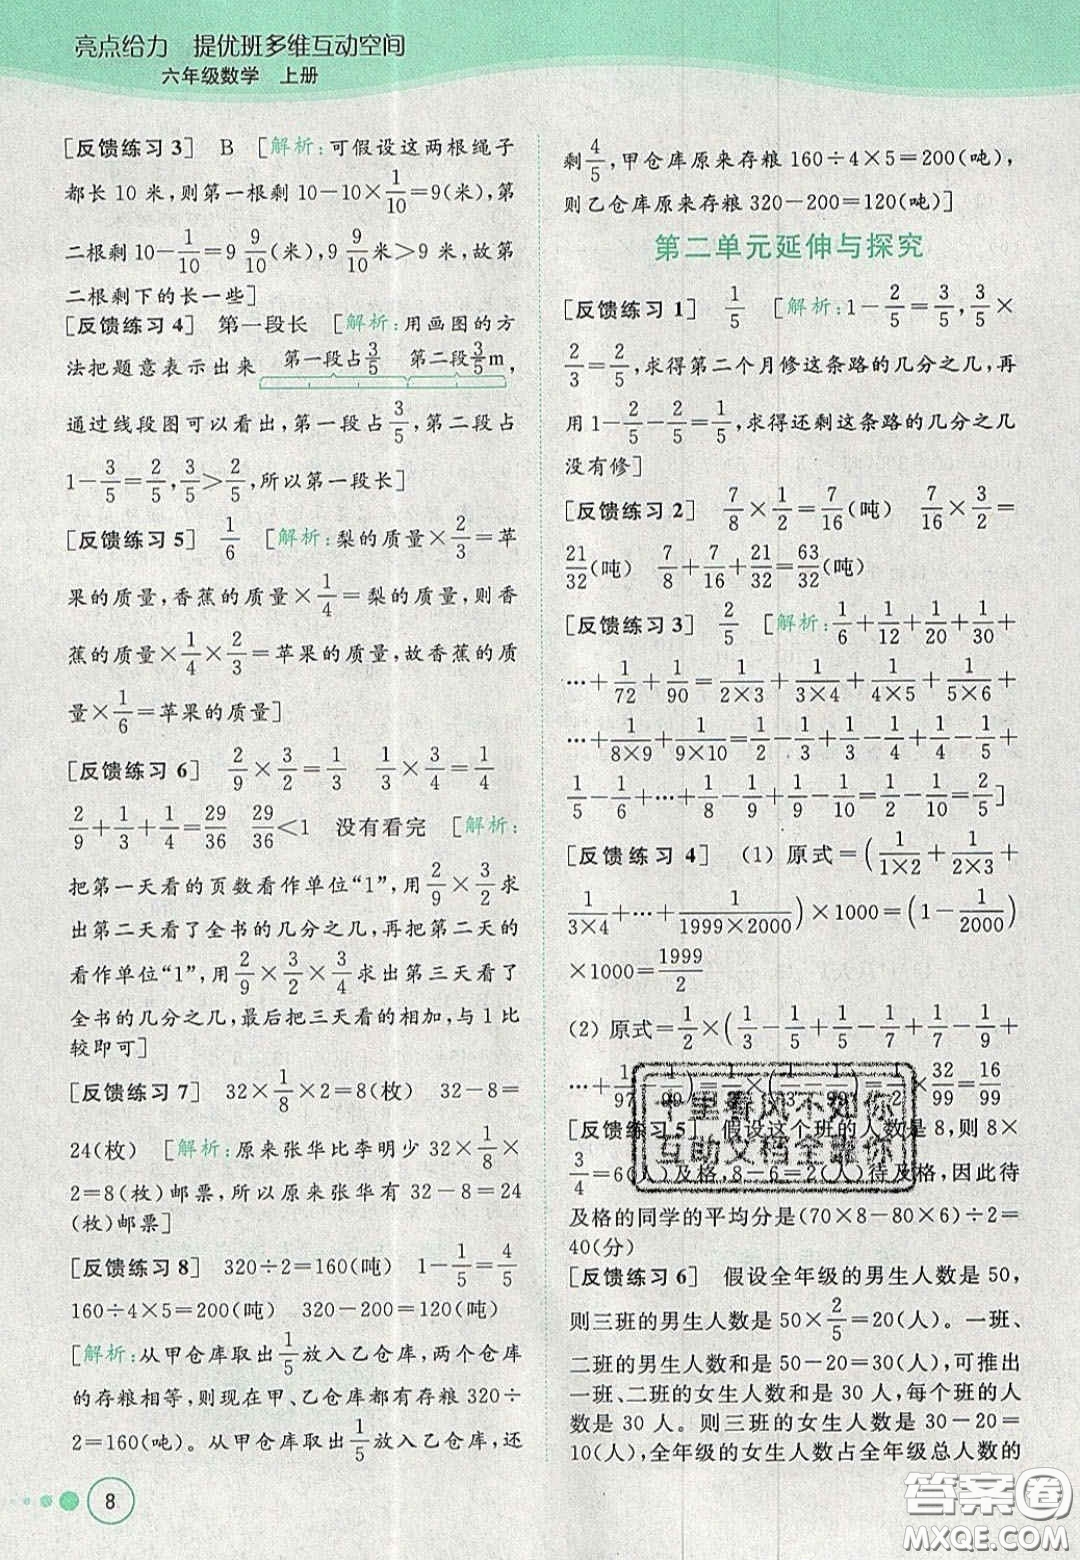 亮点给力 提优班多维互动空间
六年级数学 上册
[反馈练习3] B [解析:可假设这两根绳子
都长10米,则第一根剩10-10×1/10=9(米),第
二根剩10-1/10=9 9/10(米),9 9/10米>9米,故第
二根剩下的长一些]
[反馈练习4] 第一段长 [解析:用画图的方
法把题意表示出来 第一段占3/5 第二段3/5m,
通过线段图可以看出,第一段占3/5,第二段占
1-3/5=2/5,3/5>2/5,所以第一段长]
[反馈练习5] 1/6 [解析:梨的质量×2/3=苹
果的质量,香蕉的质量×1/4=梨的质量,则香
蕉的质量×1/4×2/3=苹果的质量,故香蕉的质
量×1/6=苹果的质量]
[反馈练习6] 2/9×3/2=1/3 1/3×3/4=1/4
2/9+1/3+1/4=29/36 29/36<1 没有看完 [解析:
把第一天看的页数看作单位“1”,用2/9×3/2求
出第二天看了全书的几分之几,再把第二天的
看作单位“1”,用2/9×3/2×3/4求出第三天看了
全书的几分之几,最后把三天看的相加,与1比
较即可]
[反馈练习7] 32×1/8×2=8(枚) 32-8=
24(枚) [解析:原来张华比李明少32×1/8×
2=8(枚)邮票,所以原来张华有32-8=24
(枚)邮票]
[反馈练习8] 320÷2=160(吨) 1-1/5=4/5
160÷4×5=200(吨) 320-200=120(吨)
[解析:从甲仓库取出1/5放入乙仓库,两个仓库
的存粮相等,则现在甲、乙仓库有存粮320÷
2=160(吨)。从甲仓库取出1/5放入乙仓库,还
8
剩4/5,甲仓库原来存粮160÷4×5=200(吨),
则乙仓库原来存粮320-200=120(吨)]
第二单元延伸与探究
[反馈练习1] 1/5 [解析:1-2/5=3/5,3/5×
2/3=2/5,求得第二个月修这条路的几分之几,再
用1-2/5-2/5=1/5,求得还剩这条路的几分之几
没有修]
[反馈练习2] 7/8×1/2=7/16(吨) 7/16×3/2=
21/32(吨) 7/8+7/16+21/32=63/32(吨)
[反馈练习3] 2/5 [解析:1/6+1/12+1/20+1/30+
…+1/72+1/90=1/2×3+1/3×4+1/4×5+1/5×6+
…+1/8×9+1/9×10=1/2-1/3+1/3-1/4+1/4-1/5+
1/5-1/6+…+1/8-1/9+1/9-1/10=1/2-1/10=2/5]
[反馈练习4] (1) 原式=(1/1×2+1/2×3+
1/3×4+…+1/1999×2000)×1000=(1-1/2000)
×1000=1999/2
(2) 原式=1/2×(1/3-1/5+1/5-1/7+1/7-1/9+
…+1/97-1/99)=1/2×(1/3-1/99)=1/2×32/99=16/99
[反馈练习5] 假设这个班的人数是8,则8×
3/4=6(人)及格,8-6=2(人)待及格,因此待
及格的同学的平均分是(70×8-80×6)÷2=
40(分)
[反馈练习6] 假设全年级的男生人数是50,
则三班的男生人数是50×2/5=20(人)。一班、
二班的男生人数和是50-20=30(人),可推出
一班、二班的女生人数和是30人,每个班的人
数是30人。则三班的女生人数是30-20=
10(人),全年级的女生人数占全年级总人数的
十里春风不如你
互助文档全靠你
答案圈
MXQE.COM